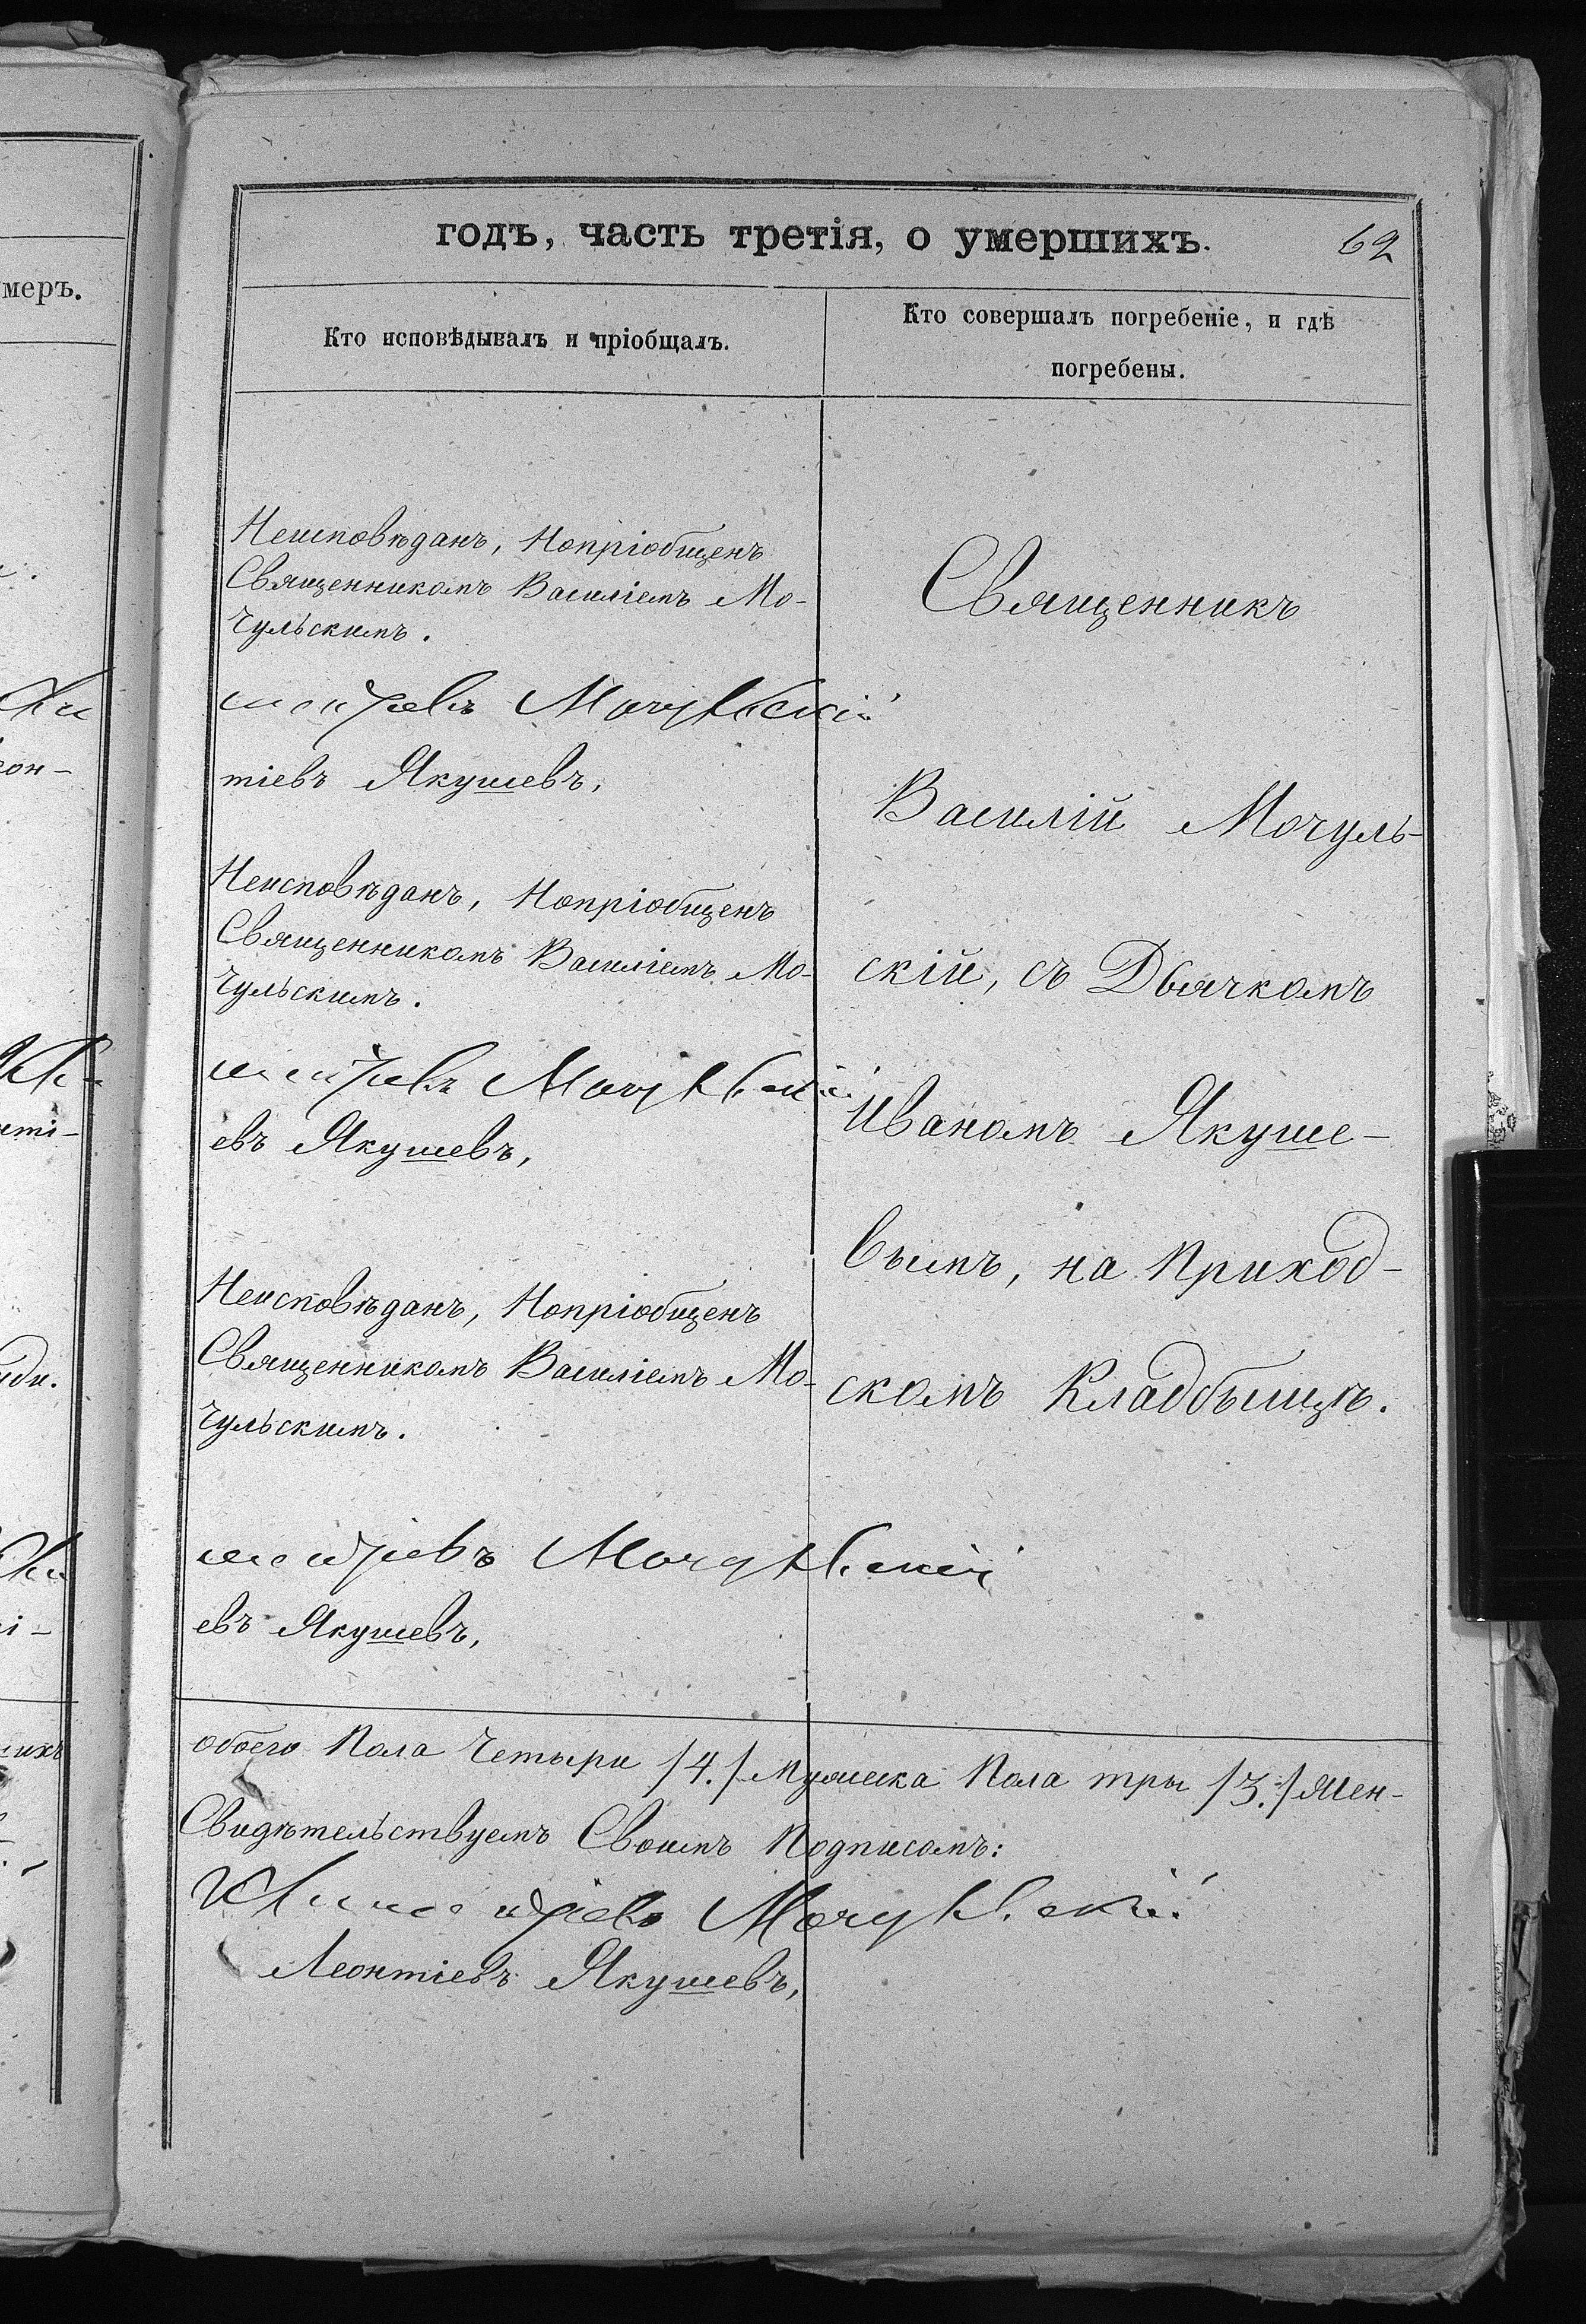 годъ, часть третія, о умершихъ.
69
меръ.
Кто исповѣдывалъ и пріобщалъ.
Кто совершалъ погребеніе, и гдѣ
погребены.
Неисповѣданъ, Нопріобщенъ
Священникомъ Василіемъ Мо-
чульскимъ.
Мочульскій
тіевъ Якушевъ,
Неисповѣданъ, Нопріобщенъ
Священникомъ Василіемъ Мо-
чульскимъ.
Мочульскій
евъ Якушевъ,
Неисповѣданъ, Нопріобщенъ
Священникомъ Василіемъ Мо-
чульскимъ.
Мочульскій
евъ Якушевъ,
Священникъ
Василій Мочуль-
скій, съ Дьячкомъ
Иваномъ Якуше-
вымъ, на Приход-
скомъ Кладбыщѣ.
обоего Пола Четыри /4./ Мужеска Пола тры /3./ Жен-
Свидѣтельствуемъ Своимъ Подписомъ:
Мочульскій
Леонтіевъ Якушевъ,